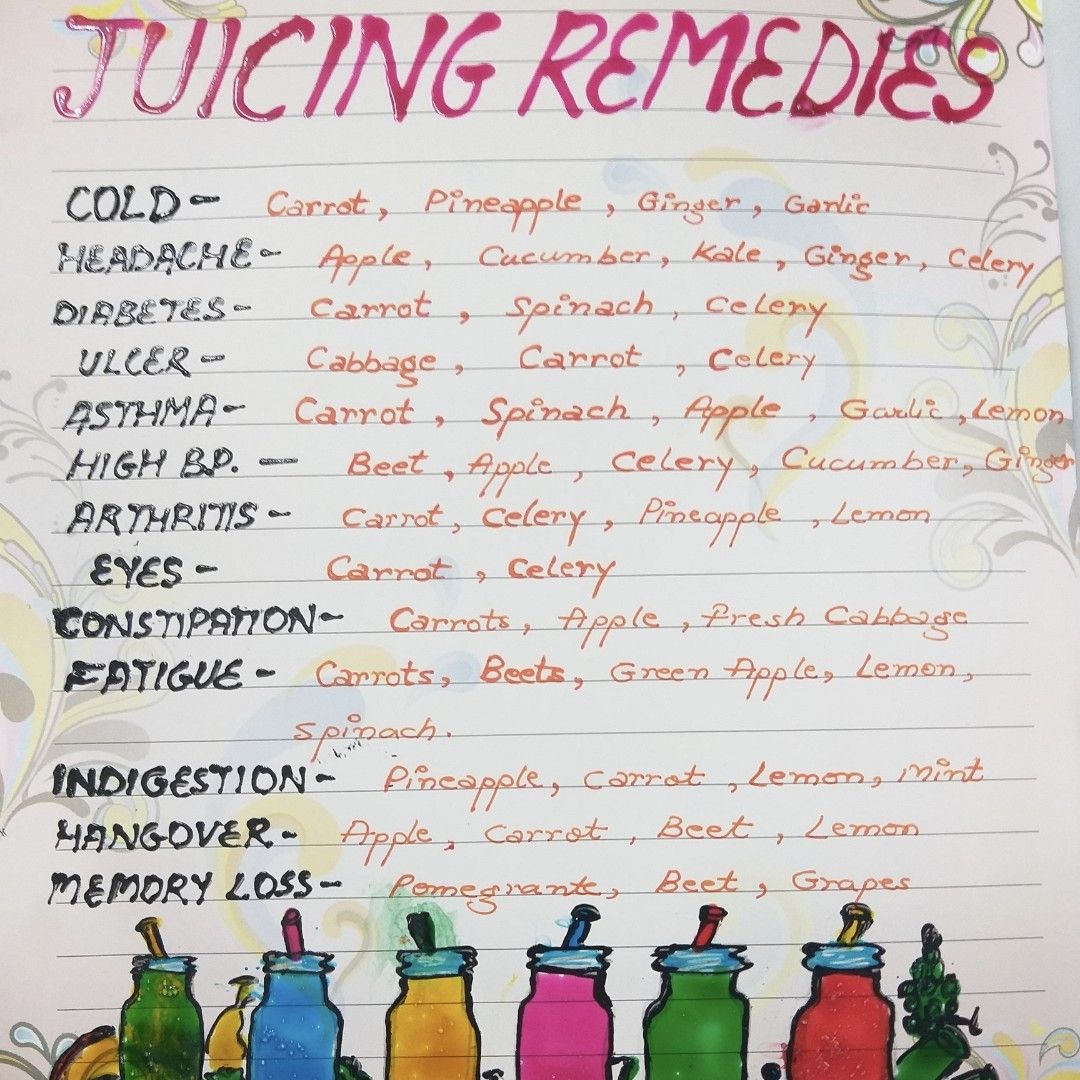 JUICING REMEDIES
COLD - Carrot, Pineapple, Ginger, Garlic
HEADACHE - Apple, Cucumber, Kale, Ginger, Celery
DIABETES - Carrot, Spinach, Celery
ULCER - Cabbage, Carrot, Celery
ASTHMA - Carrot, Spinach, Apple, Garlic, Lemon
HIGH B.P. - Beet, Apple, Celery, Cucumber, Ginger
ARTHRITIS - Carrot, Celery, Pineapple, Lemon
EYES - Carrot, Celery
CONSTIPATION - Carrots, Apple, Fresh Cabbage
FATIGUE - Carrots, Beets, Green Apple, Lemon,
spinach.
INDIGESTION - Pineapple, Carrot, Lemon, Mint
HANGOVER - Apple, Carrot, Beet, Lemon
MEMORY LOSS - Pomegrante, Beet, Grapes